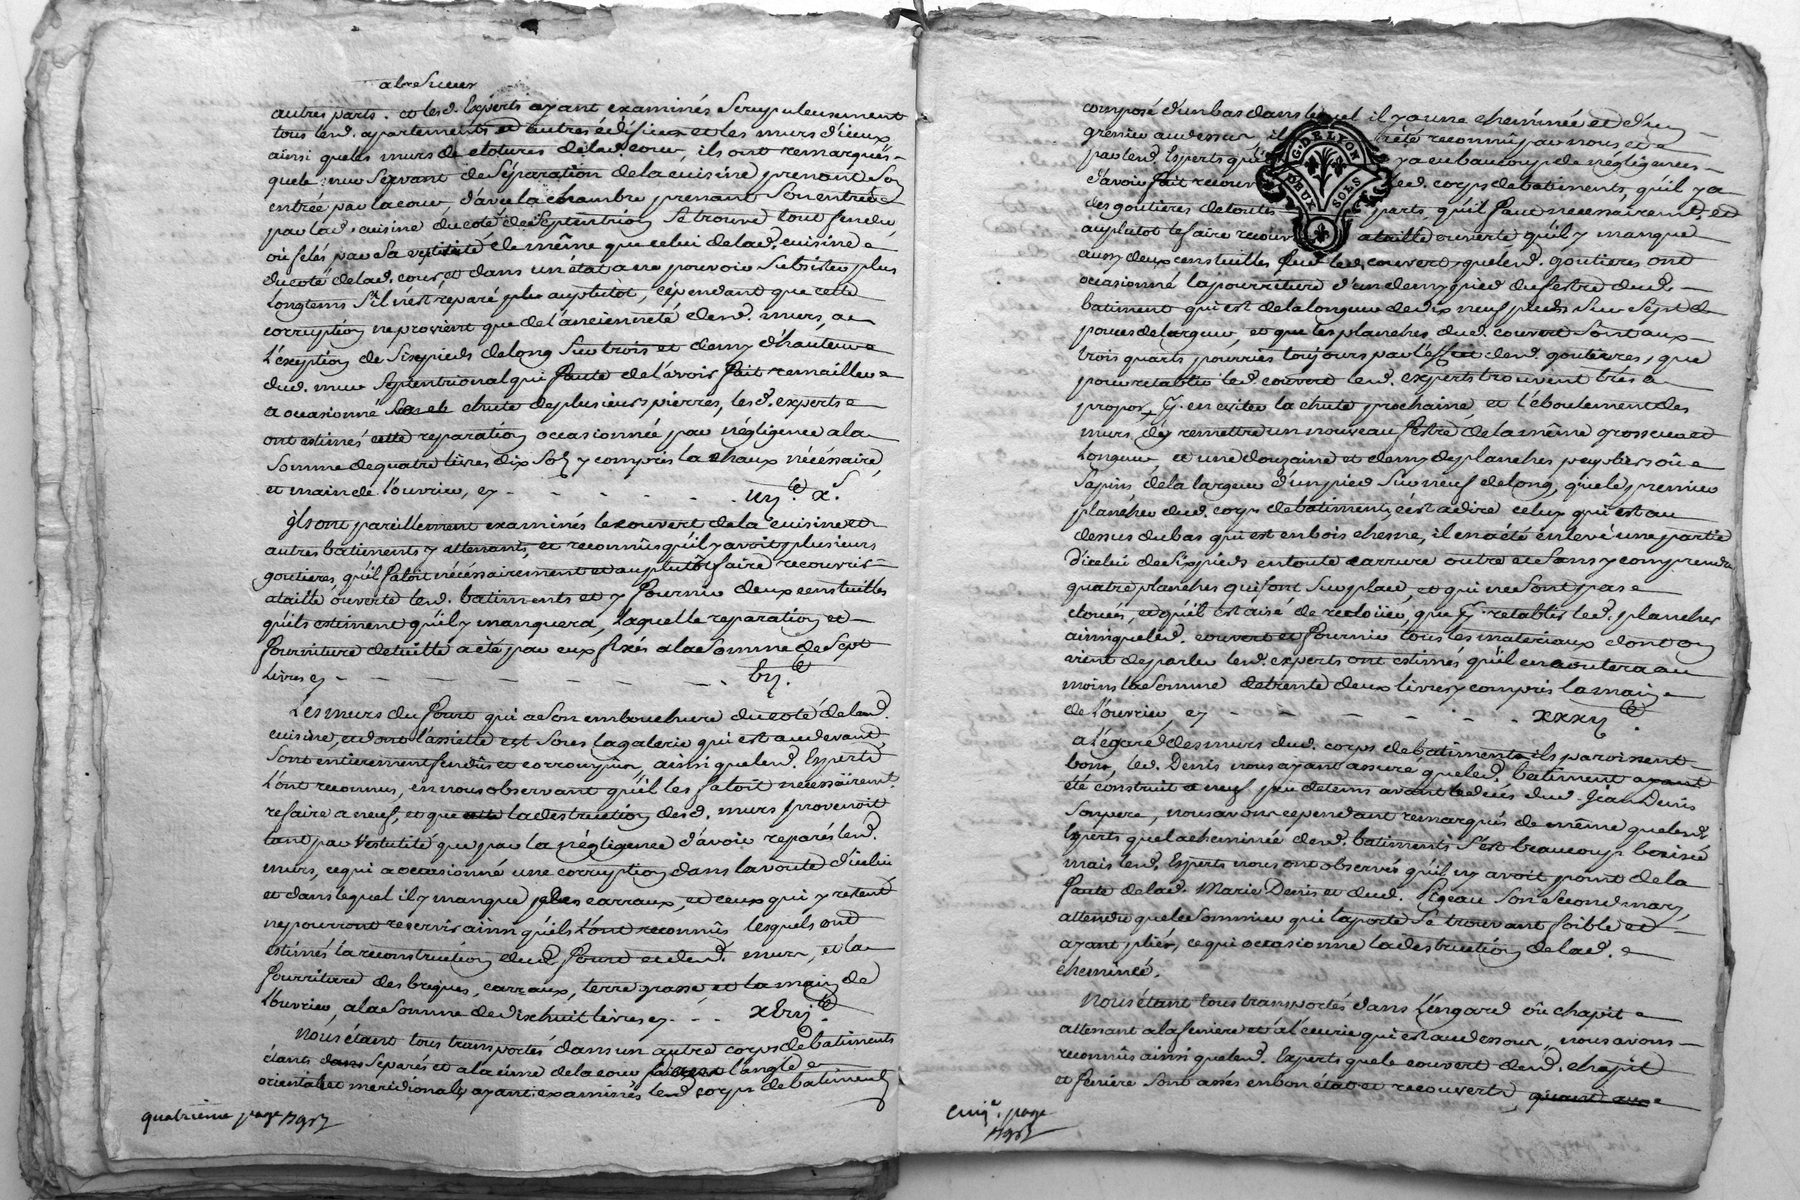 a la Sueur
autres parts. et lesd. Experts ayant examinés Scrupuleusement
tous lesd. apartements et autres édifices et les murs d'iceux
ainsi que les murs de clotures de lad. cour, ils ont remarqués
que le mur Servant de Séparation de la cuisine prenant Son
entrée par la cour d'avec la chambre prenant Son entrée
par lad. cuisine du coté de Septentrion Se trouve tout fendu
ou felés par Sa vetusté de même que celui de lad. cuisine
du coté de lad. cour, et dans un état a ne pouvoir Subsister plus
longtems S'il n'est reparé plus auplutôt, cépendant que cette
corruption ne provient que de l'ancienneté desd. murs, a
l'exeption de Six pieds de long Sur trois et demy d'hauteur
dud. mur Septentrional qui faute de l'avoir fait remailler
a ocasionné la chute de plusieurs pierres, lesd. experts
ont estimés cette reparation occasionnée par négligence a la
Somme de quatre livres dix Sols y compris la chaux nécéssaire,
et main de l'ouvrier, cy - - - - - - iiij.tt x.s
Ils ont pareillement examinés le couvert de la cuisine et
autres batiments y attenants, et reconnûs qu'il y avoit plusieurs
goutieres, qu'il faloit nécéssairement et auplutôt faire recouvrir
a taille ouverte lesd. batiments et y fournir deux cens tuilles
qu'ils estiment qu'il y manquera, laquelle reparation et
fourniture de tuille a été par eux fixés a la Somme de Sept
livres cy - - - - - - - - vij.tt
Les murs du fourt qui a Son embouchure du coté de lad.
cuisine, et dont l'assiette est Sous la galerie qui est au devant,
Sont entierement fendûs et corrompûs, ainsi que lesd. Experts
l'ont reconnus, en nous observant qu'il les faloit nécéssairemt.
refaire a neuf, et que la destruction desd. murs provenoit
tant par Vetusté que par la négligence d'avoir reparés lesd.
murs, ce qui a occasionné une corruption dans la voute d'icelui
et dans lequel il y manque des carraux, et ceux qui y restent
ne pourront reservir ainsi qu'ils l'ont reconnûs lesquels ont
estimés la reconstruction dud. fourt et desd. murs, et la
fourniture des briques, carraux, terre grasse et la main de
l'ouvrier, a la Somme de dix huit livres cy - - - xviij.tt
Nous étant tous transportés dans un autre corps de batiments
étants Separés et a la cime de la cour l'angle
orientale et meridionale, ayant examinés led. corps de batiments
quatrième page
composé d'un bas dans lequel il y a une cheminée et d'un
grenier au dessus il été reconnû par nous et
par lesd. Experts qu'il y a eu beaucoup de négligences
d'avoir fait recouvrir led. corps de batiments, qu'il y a
des goutieres de toutes parts, qu'il faut nécéssairemt. et
auplutot le faire recouvrir a taille ouverte qu'il y manque
aussy deux cens tuilles Sur led. couvert, que lesd. goutieres ont
ocasionné la pourriture d'un demy pied du festre dud.
batiment qui est de la longueur de dix neuf pieds Sur Sept de
pouces de largeur, et que les planches dud. couvert Sont aux
trois quarts pourries toujours par l'effet desd. goutieres, que
pour retablir led. couvert lesd. experts trouvent trés a
propos p.r en eviter la chute prochaine, et l'éboulement des
murs, d'y remettre un nouveau festre de la même grosseur et
longueur et une douzaine et demy de planches peupliers oû
Sapins de la largeur d'un pied Sur neuf de long, que le premier
plancher dud. corps de batiment, c'est a dire celui qui est au
dessus du bas qui est en bois chesne, il en a été enlevé une partie
d'icelui de Six pieds en toute carrure outre et Sans y comprendre
quatre planches qui Sont Sur place, et qui ne Sont pas
clouées, et qu'il est aisé de reclouer, que p.r retablir led. plancher
ainsi que led. couvert et fournir tous les materiaux dont on
vient de parler lesd. experts ont estimés qu'il en coutera au
moins la Somme de trente deux livres y compris la main
de l'ouvrier, cy - - - - - - - xxxij.tt
a l'égard des murs dud. corps de batiments ils paroissent
bons, led. Denis nous ayant assuré que led. batiment ayant
été construit a neuf peu de tems avant le décés dud. Jean Denis
Son pere, nous avons cependant remarqués de même que lesd.
Experts que la cheminée dud. batiments S'est beaucoup baissée
mais lesd. Experts nous ont observés qu'il n'y avoit point de la
faute de lad. Marie Denis et dud. Pigeau Son Second mary,
attendu que le Sommier qui la porte Se trouvant foible et
ayant pliés, ce qui occasionne la destruction de lad.
cheminée.
Nous étant tous transportés dans l'Engard oû chapit
attenant a la feniere et a l'écurie qui est au dessous, nous avons
reconnûs ainsi que lesd. Experts que le couvert dud. chapit
et feniere Sont assés en bon état et recouverts,
cinq.e page
G. DE LYON
DEUX SOLS